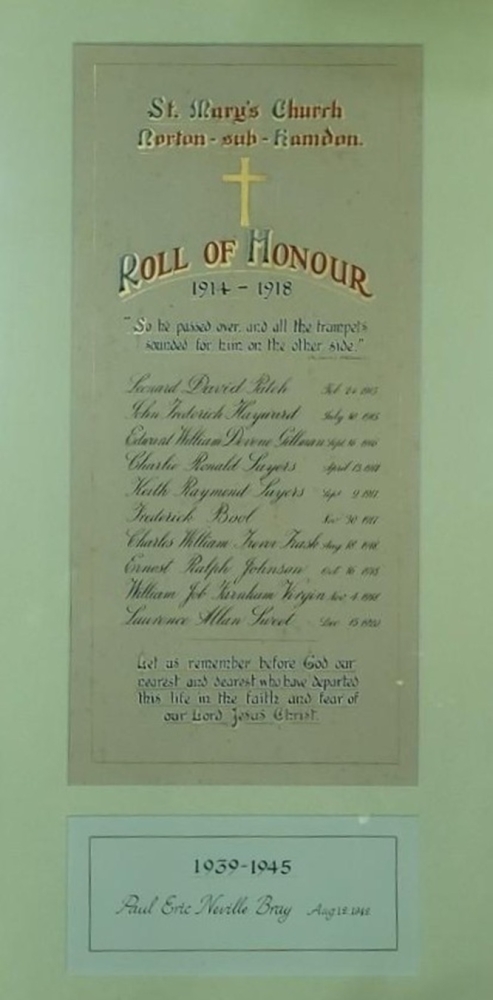 St. Mary's Church
Norton-sub-Hamdon.
ROLL OF HONOUR
1914 - 1918
"So he passed over, and all the trumpets
sounded for him on the other side."
Leonard David Patch Feb 24
John Frederick Hayward July 10 1915
Edward William Devene Gillman Sept 16 1916
Charlie Ronald Sayers April 13
Keith Raymond Sayers Sept 9 1917
Frederick Bool Nov 30 1917
Charles William Trevor Trask Aug 18
Ernest Ralph Johnson Oct 16 1918
William Job Farnham Virgin Nov 4 1918
Laurence Allan Sweet Dec 15 1920
Let us remember before God our
nearest and dearest who have departed
this life in the faith and fear of
our Lord Jesus Christ.
1939-1945
Paul Eric Neville Bray Aug 12 1942